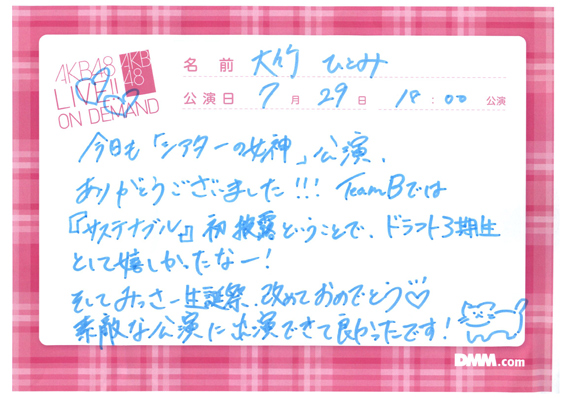 AKB48
LIVE!!
ON DEMAND
AKB
48
名前 大竹 ひとみ
公演日 7月 29日 18:00 公演
今日も「シアターの女神」公演、
ありがとうございました!!! TeamBでは
『サステナブル』初披露ということで、ドラフト3期生
として嬉しかったなー!
そしてみっさー生誕祭、改めておめでとう♡
素敵な公演に出演できて良かったです!
DMM.com